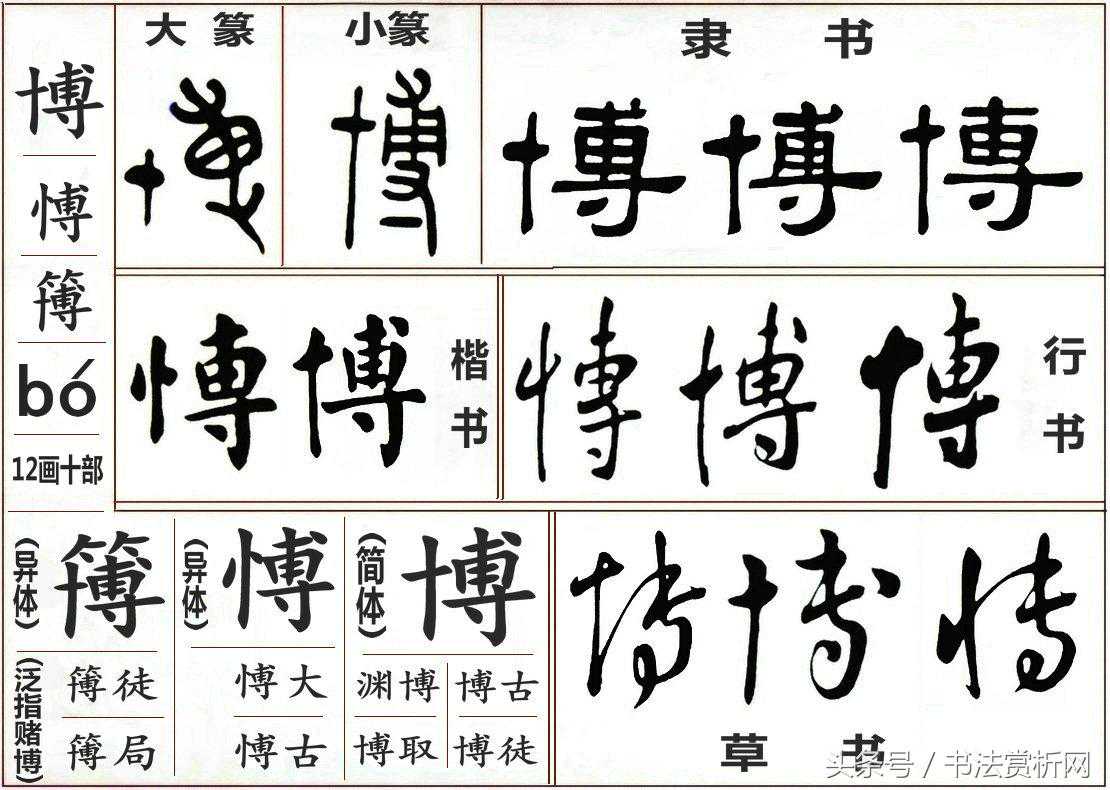 博
愽
簙
bó
12画十部
大篆
博
小篆
博
隶书
博博博
愽博
楷书
愽博博
行书
(异体)
簙
(泛指赌博)
簙徒
簙局
(异体)
愽
愽大
愽古
(简体)
博
渊博
博古
博取
博徒
博博愽
草书
头条号 / 书法赏析网